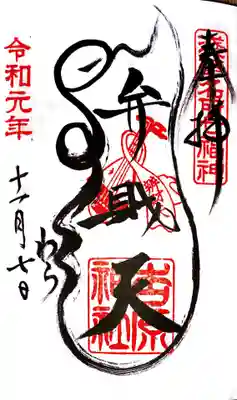 奉拝
弁財天
吉原
神社
令和元年
十一月七日